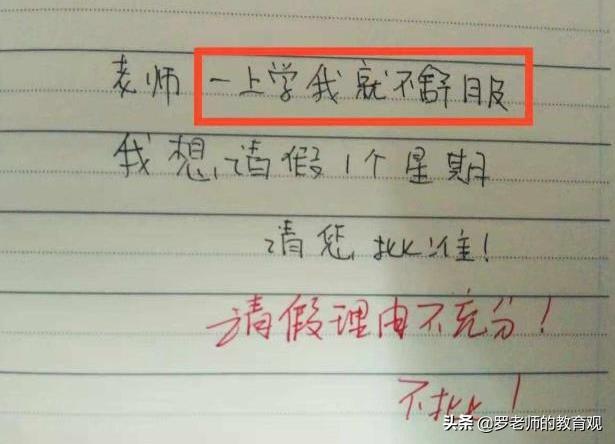 老师 一上学我就不舒服
我想请假1个星期
请您批准!
请假理由不充分!
不批!
头条 @罗老师的教育观